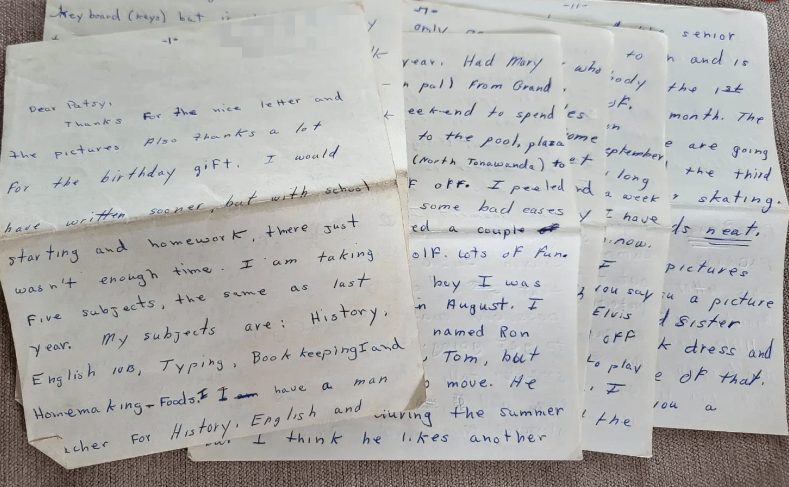 key board (keys) but
-1-
Dear Patsy,
Thanks for the nice letter and
the pictures Also thanks a lot
for the birthday gift. I would
have written sooner, but with school
starting and homework, there just
wasn't enough time. I am taking
five subjects, the same as last
year. My subjects are: History,
English 10B, Typing, Bookkeeping I and
Homemaking-Foods. I have a man
acher for History, English and
only
year. Had Mary
n pal) from Grand
eekend to spend
to the pool, plaza
(North Tonawanda) to
f off. I peeled
some bad cases
ed a couple of
olf. Lots of fun.
boy I was
n August. I
named Ron
, Tom, but
move. He
during the summer
I think he likes another
who
es
ome
et
nd
y I have
to
ody
of.
on
eptember
long
a week
I have
now.
I
you say
Elvis
off
to play
. I
the
-11-
senior
n and is
the 1st
month. The
e are going
the third
skating.
ds neat.
pictures
u a picture
d sister
k dress and
e of that.
you a